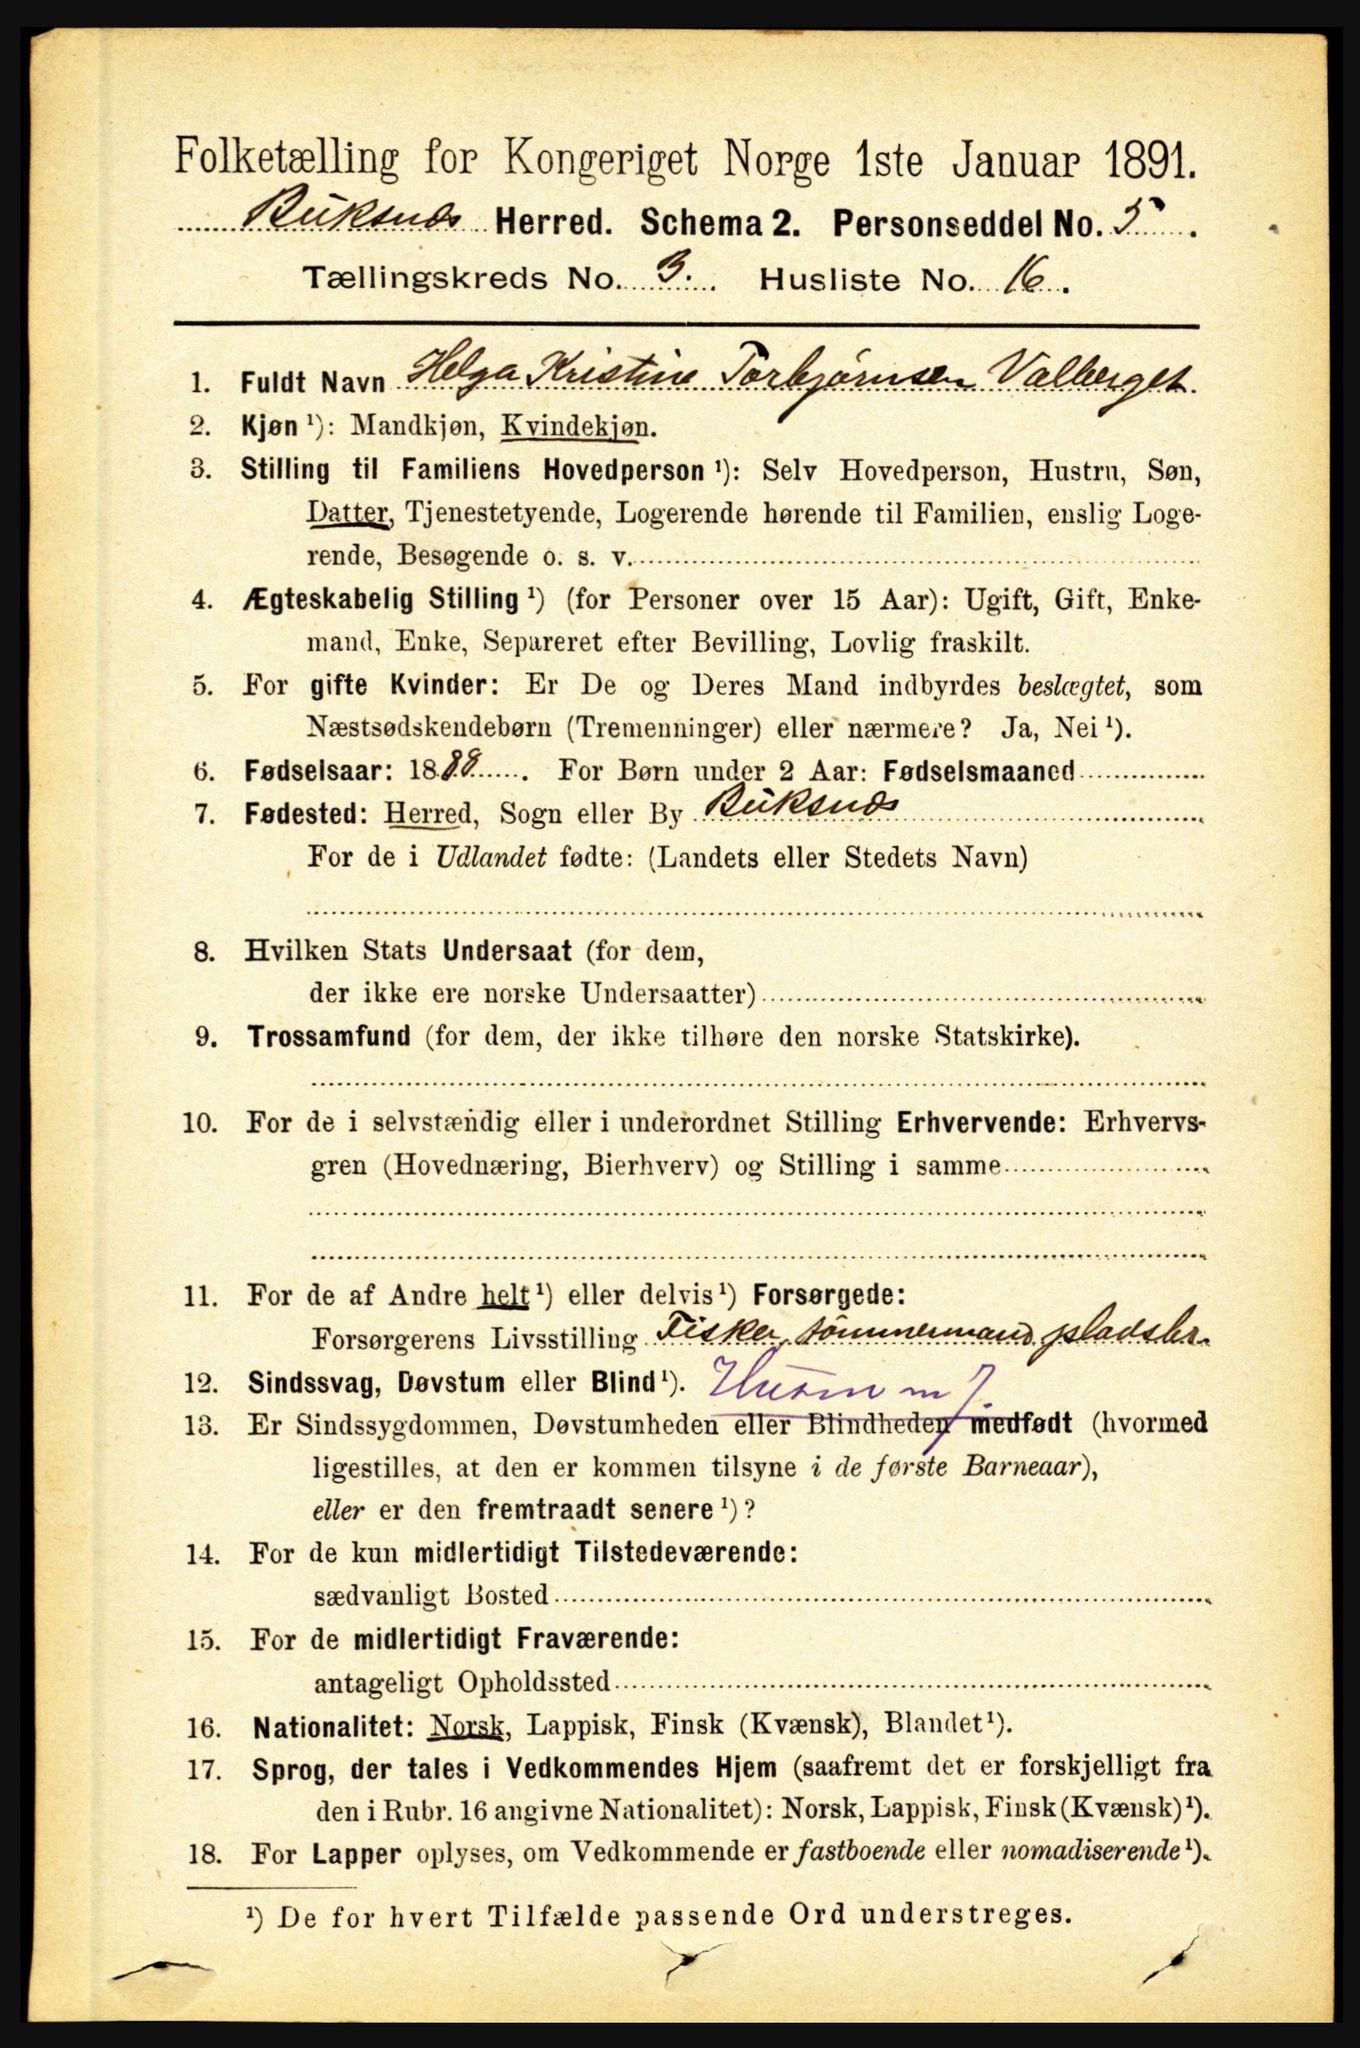 Folketælling for Kongeriget Norge 1ste Januar 1891.
Buksnæs Herred. Schema 2. Personseddel No. 5.
Tællingskreds No. 3. Husliste No. 16.
1. Fuldt Navn Helga Kristine Torbjørnsen Valberget.
2. Kjøn ¹): Mandkjøn, Kvindekjøn.
3. Stilling til Familiens Hovedperson ¹): Selv Hovedperson, Hustru, Søn,
Datter, Tjenestetyende, Logerende hørende til Familien, enslig Loge-
rende, Besøgende o. s. v.
4. Ægteskabelig Stilling ¹) (for Personer over 15 Aar): Ugift, Gift, Enke-
mand, Enke, Separeret efter Bevilling, Lovlig fraskilt.
5. For gifte Kvinder: Er De og Deres Mand indbyrdes beslægtet, som
Næstsødskendebørn (Tremenninger) eller nærmere? Ja, Nei ¹).
6. Fødselsaar: 1888. For Børn under 2 Aar: Fødselsmaaned
7. Fødested: Herred, Sogn eller By Buksnæs
For de i Udlandet fødte: (Landets eller Stedets Navn)
8. Hvilken Stats Undersaat (for dem,
der ikke ere norske Undersaatter)
9. Trossamfund (for dem, der ikke tilhøre den norske Statskirke).
10. For de i selvstændig eller i underordnet Stilling Erhvervende: Erhvervs-
gren (Hovednæring, Bierhverv) og Stilling i samme
11. For de af Andre helt ¹) eller delvis ¹) Forsørgede:
Forsørgerens Livsstilling Fisker, tømmermand pladsbr.
12. Sindssvag, Døvstum eller Blind ¹). Husm m J.
13. Er Sindssygdommen, Døvstumheden eller Blindheden medfødt (hvormed
ligestilles, at den er kommen tilsyne i de første Barneaar),
eller er den fremtraadt senere ¹)?
14. For de kun midlertidigt Tilstedeværende:
sædvanligt Bosted
15. For de midlertidigt Fraværende:
antageligt Opholdssted
16. Nationalitet: Norsk, Lappisk, Finsk (Kvænsk), Blandet ¹).
17. Sprog, der tales i Vedkommendes Hjem (saafremt det er forskjelligt fra
den i Rubr. 16 angivne Nationalitet): Norsk, Lappisk, Finsk (Kvænsk) ¹).
18. For Lapper oplyses, om Vedkommende er fastboende eller nomadiserende ¹).
¹) De for hvert Tilfælde passende Ord understreges.